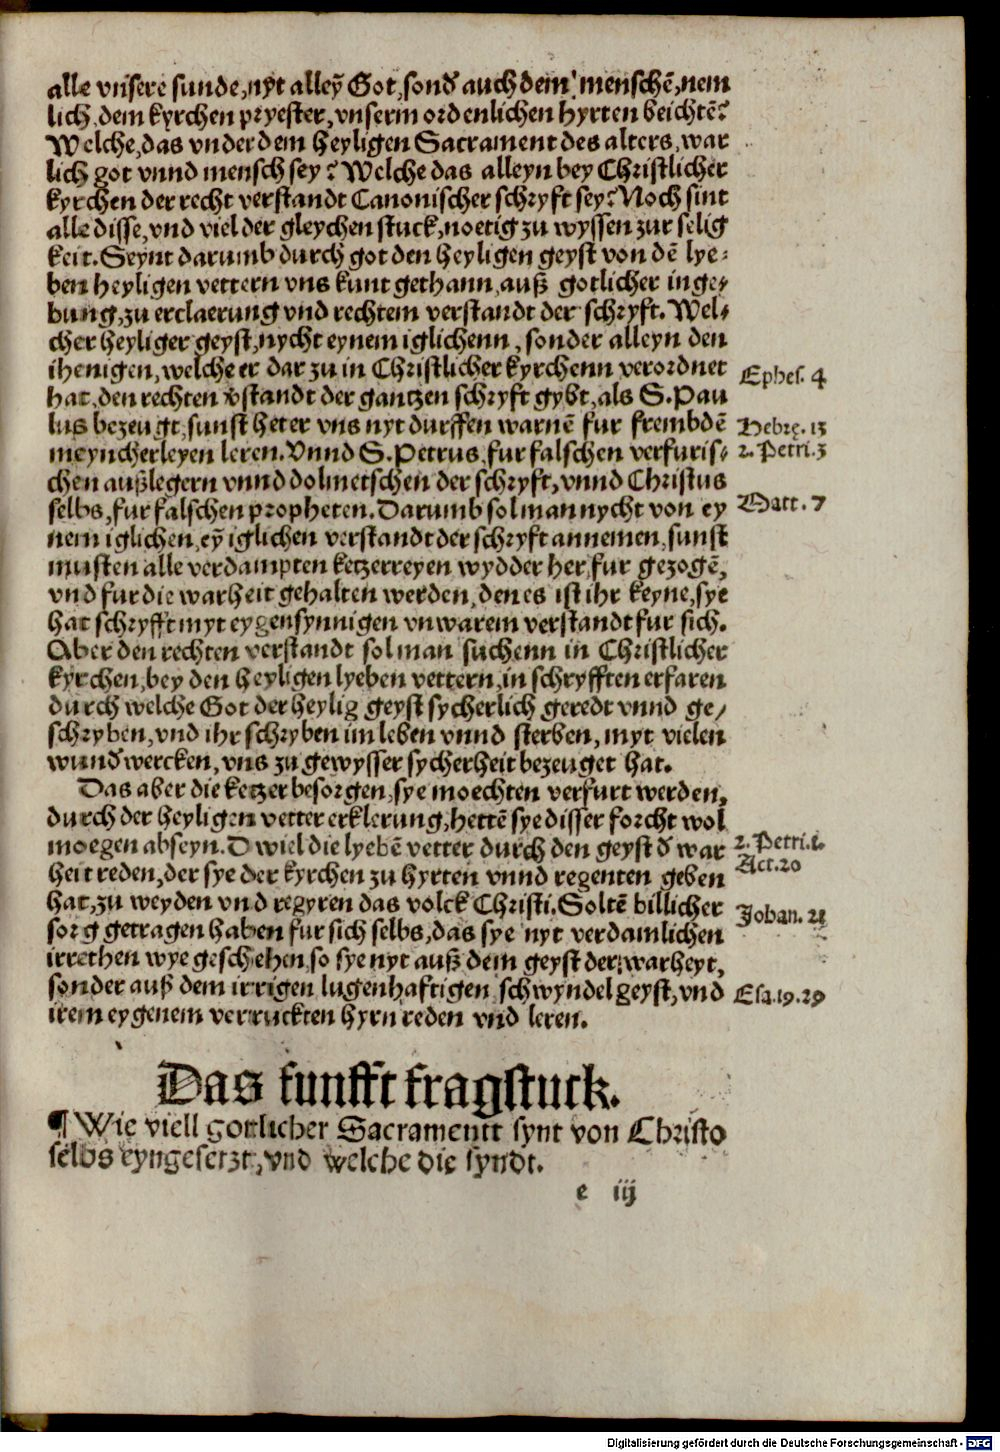 alle vnsere sunde, nyt alleỹ Got, sonď auch dem menschẽ, nem
lich, dem kyrchen pryester, vnserm ordenlichen hyrten beichtẽ?
Welche, das vnder dem heyligen Sacrament des alters, war
lich got vnnd mensch sey? Welche das alleyn bey Christlicher
kyrchen der recht verstandt Canonischer schryft sey? Noch sint
alle disse, vnd viel der gleychen stuck, noetig zu wyssen zur selig
keit. Seynt darumb durch got den heyligen geyst von dẽ lye⸗
ben heyligen vettern vns kunt gethann, auß gotlicher inge⸗
bung, zu erclaerung vnd rechtem verstandt der schryft. Wel⸗
cher heyliger geyst, nycht eynem iglichenn, sonder alleyn den
ihenigen, welche er dar zu in Christlicher kyrchenn verordnet
hat, den rechten v̈standt der gantzen schryft gybt, als S. Pau
lus bezeugt, sunst het er vns nyt durffen warnẽ fur frembdẽ
meyncherleyen leren. Vnnd S. Petrus, fur falschen verfuris⸗
chen außlegern vnnd dolmetschen der schryft, vnnd Christus
selbs, fur falschen propheten. Darumb sol man nycht von ey
nem iglichen, eỹ iglichen verstandt der schryft annemen, sunst
musten alle verdampten ketzerreyen wydder her, fur gezogẽ,
vnd fur die warheit gehalten werden, den es ist ihr keyne, sye
hat schryfft myt eygensynnigen vnwarem verstandt fur sich.
Aber den rechten verstandt sol man suchenn in Christlicher
kyrchen, bey den heyligen lyeben vettern, in schryfften erfaren
durch welche Got der heylig geyst sycherlich geredt vnnd ge⸗
schryben, vnd ihr schryben im leben vnnd sterben, myt vielen
wunď wercken, vns zu gewysser sycherheit bezeuget hat.
Das aber die ketzer besorgen, sye moechten verfurt werden,
durch der heyligen vetter erklerung, hettẽ sye disser forcht wol
moegen abseyn. Dwiel die lyebẽ vetter durch den geyst ď war
heit reden, der sye der kyrchen zu hyrten vnnd regenten geben
hat, zu weyden vnd regyren das volck Christi. Soltẽ billicher
sorg getragen haben fur sich selbs, das sye nyt verdamlichen
irrethen wye geschehen, so sye nyt auß dem geyst der warheyt,
sonder auß dem irrigen lugenhaftigen schwyndel geyst, vnd
irem eygenem verruckten hyrn reden vnd leren.
Ephes. 4
Hebrę. 13
2. Petri. 3
Matt. 7
2. Petri. 1.
Act. 20
Johan. 21
Esa. 19. 29
Das funfft fragstuck.
¶ Wie viell gotlicher Sacramentt synt von Christo
selbs eyngesetzt, vnd welche die syndt.
e iij
Digitalisierung gefördert durch die Deutsche Forschungsgemeinschaft - DFG